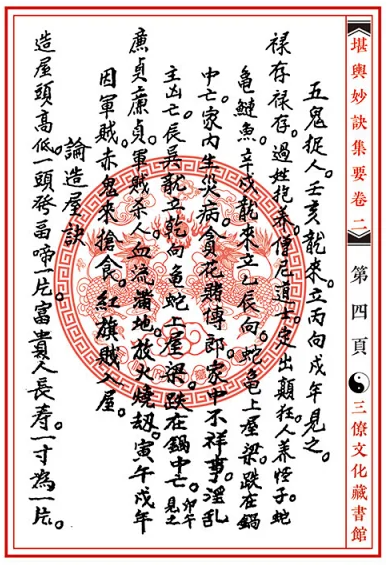 堪輿妙訣集要卷二
第四頁
三僚文化藏書館
五鬼捉人。壬亥龍來。立丙向戌年見之。
祿存祿存。過姓抱養。僧尼道士。定出顛狂。人養怪子。蛇
龜鰱魚。辛戌龍來立乙辰向。蛇龜上屋梁。跌在鍋
中亡。家內生災病。貪花賭博郎。家中不祥事。淫乱
主凶亡。辰巽龍立乾向。龜蛇上屋梁。跌在鍋中亡。卯午見之
廉貞廉貞。軍賊杀人。血流滿地。放火燒劫。寅午戌年
因軍賊。赤鬼來搶食。紅旗賊入屋。
論造屋訣
造屋頭高低。一頭發畐啼一片。富貴人長寿。一寸為一片。